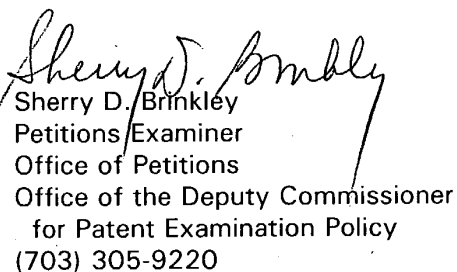 Sherry D. Brinkley
Sherry D. Brinkley
Petitions Examiner
Office of Petitions
Office of the Deputy Commissioner
for Patent Examination Policy
(703) 305-9220